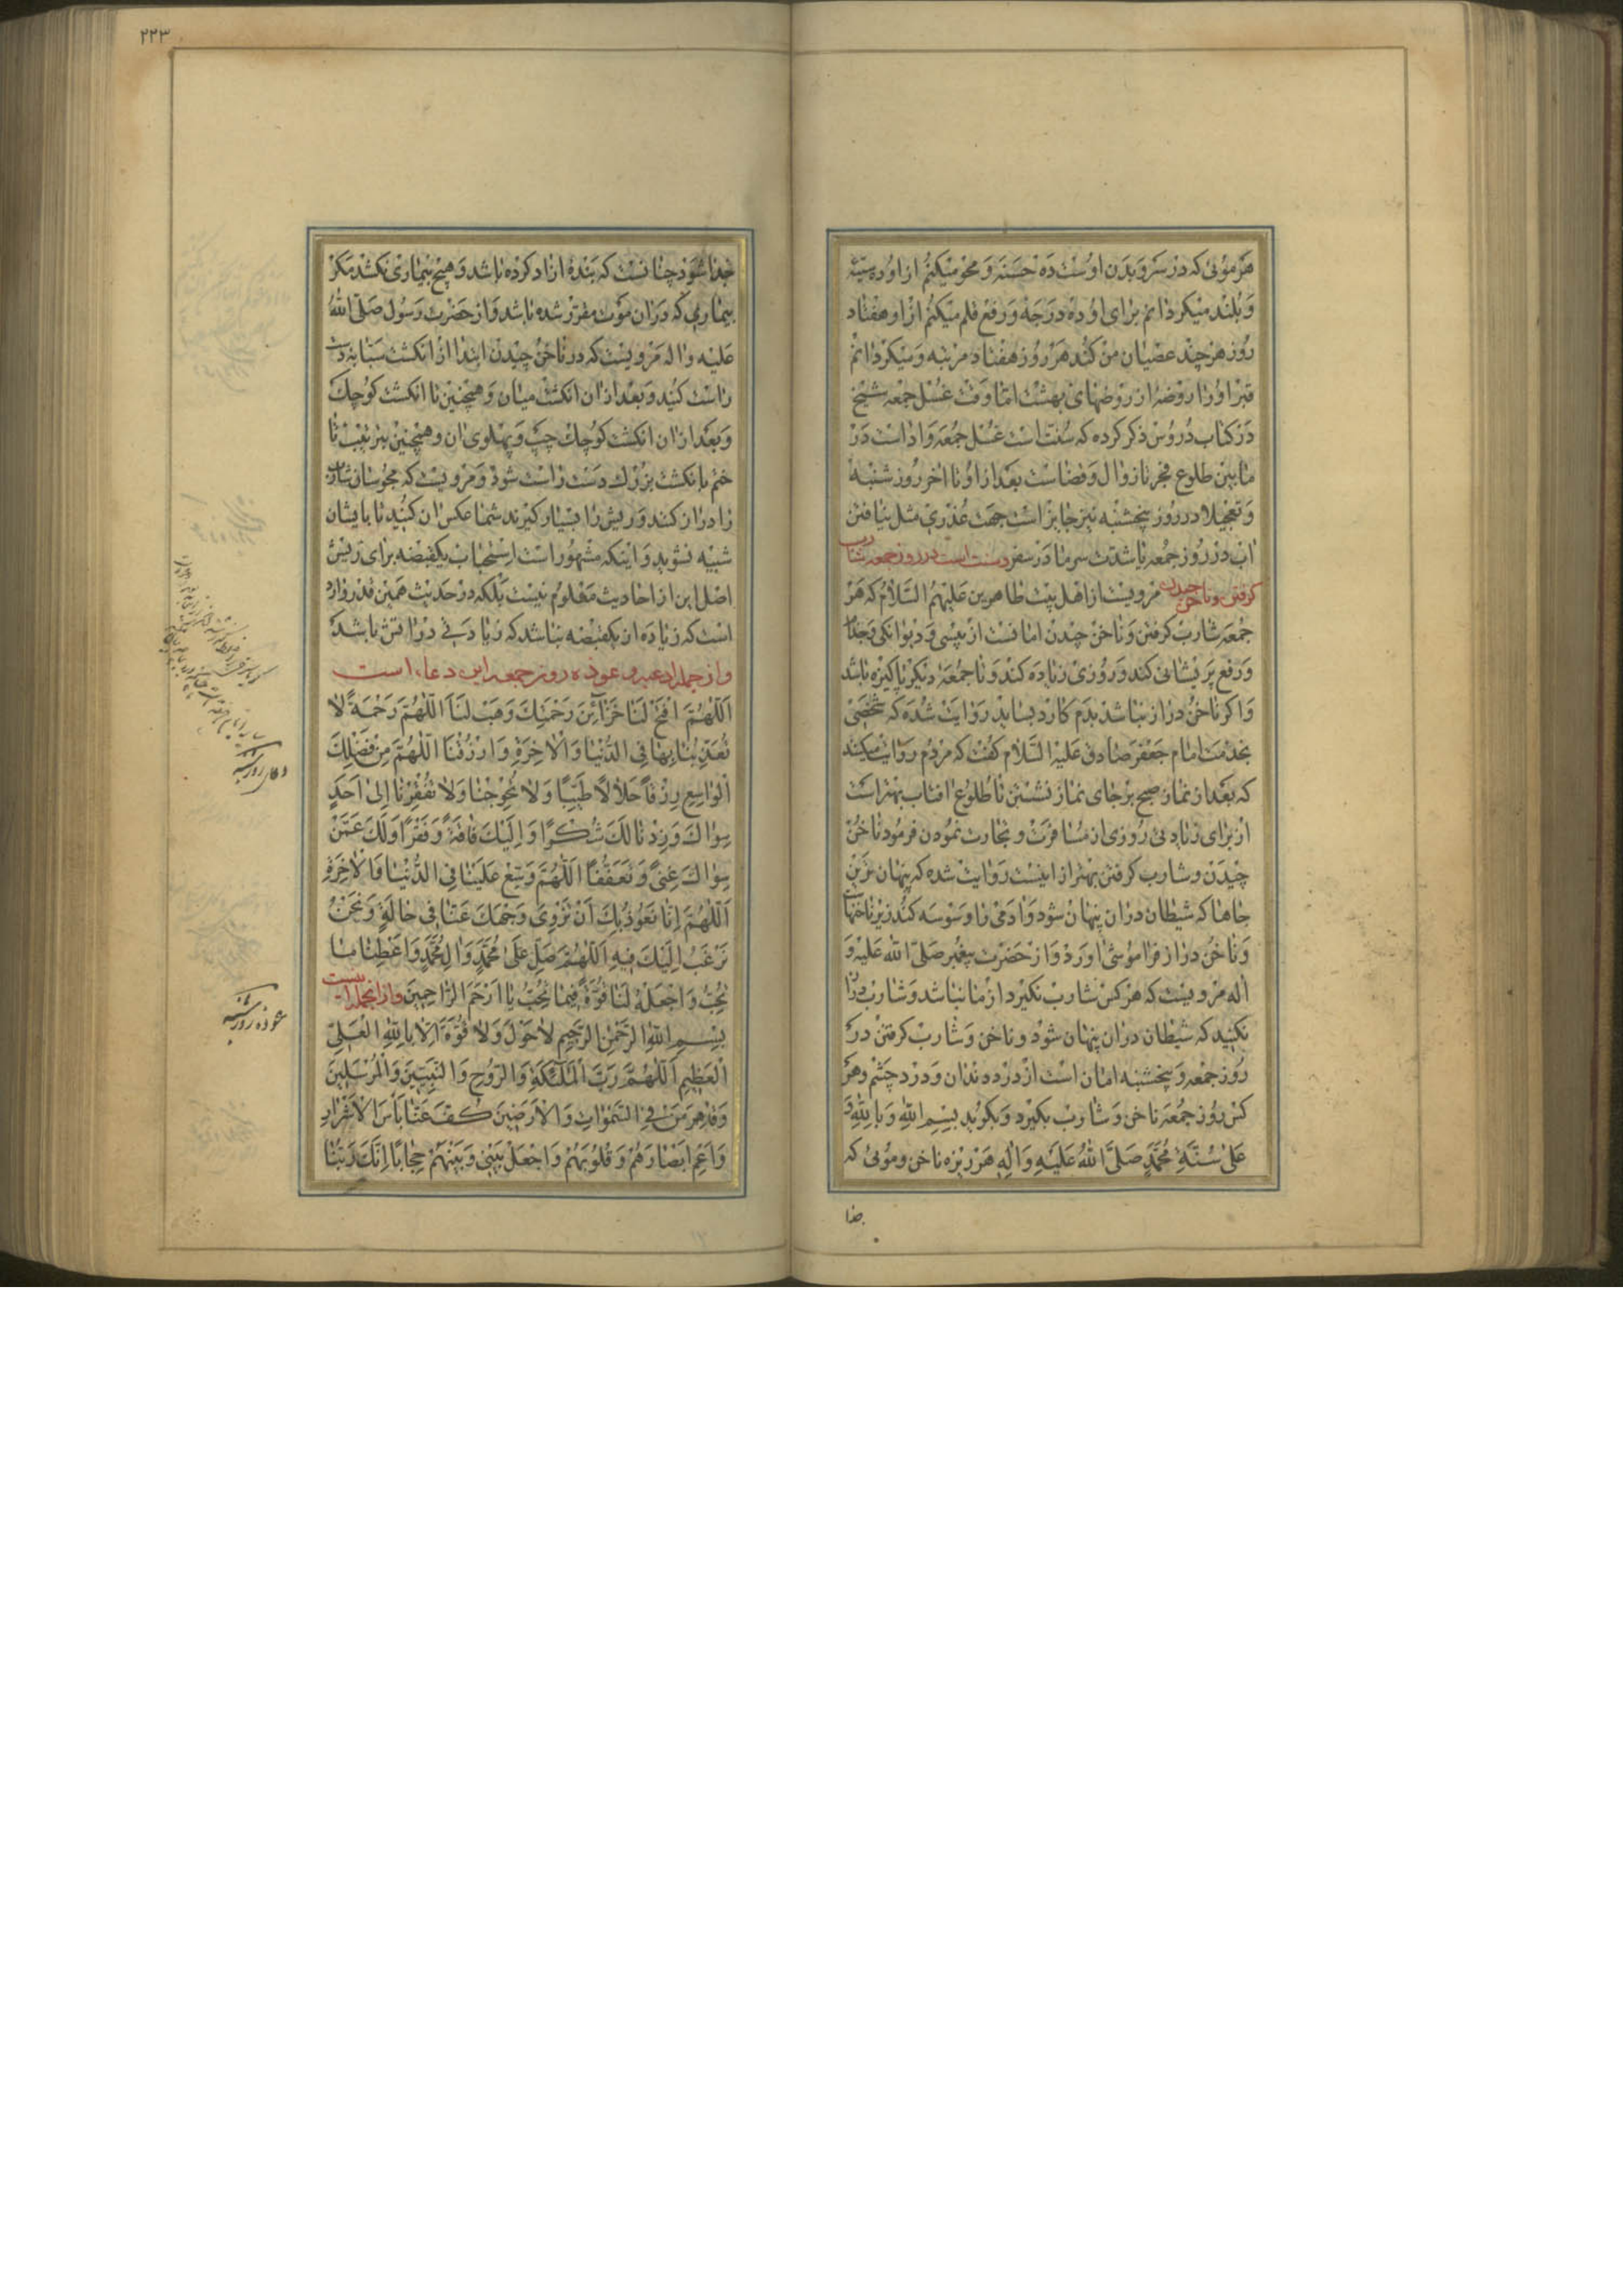 هر موئی که در سر و بدن اوست ده حسنه و محو میکنم از او ده سیئه
و بلند میکردانم برای او ده درجه و رفع قلم میکنم از او هفتاد
روز هر چند عصیان من کند هر روز هفتاد مرتبه و میکردانم
قبر او را روضهٔ از روضهای بهشت اما وقت غسل جمعه شیخ
در کتاب دروس ذکر کرده که سنت است غسل جمعه و ادا است در
مابین طلوع فجر تا زوال و قضاست بعد از او تا اخر روز شنبه
و تعجیلا در روز پنجشنبه نیز جایز است جهت عذری مثل نیافتن
اب در روز جمعه یا شدت سرما در سفر و سنت است در روز جمعه شارب
کرفتن و ناخن چیدن مرویست از اهل بیت طاهرین علیهم السلام که هر
جمعه شارب کرفتن و ناخن چیدن امانست از پیسی و دیوانکی و جذام
و رفع پریشانی کند و روزی زیاده کند و تا جمعهٔ دیکر پاکیزه باشد
و اکر ناخن دراز نباشد بدم کارد بساید روایت شده که شخصی
بخدمت امام جعفر صادق علیه السلام کفت که مردم روایت میکنند
که بعد از نماز صبح بر جای نماز نشستن تا طلوع افتاب بهتر است
از برای زیادتی روزی از مسافرت و تجارت نمودن فرمود ناخن
چیدن و شارب کرفتن بهتر از اینست روایت شده که پنهان ترین
جاها که شیطان در ان پنهان شود و ادمی را وسوسه کند زیر ناخنهاست
و ناخن دراز فراموشی اورد و از حضرت پیغمبر صلی الله علیه و
اله مرویست که هر کس شارب نکیرد از ما نباشد و شارب دراز
نکنید که شیطان در ان پنهان شود و ناخن و شارب کرفتن در
روز جمعه و پنجشنبه امان است از درد دندان و درد چشم و هر
کس روز جمعه ناخن و شارب بکیرد و بکوید بسم الله و بالله و
علی سنة محمد صلی الله علیه و اله هر ریزه ناخن و موئی که
جدا
۲۲۳
جدا شود چنانست که بندهٔ ازاد کرده باشد و هیچ بیماری نکشد مکر
بیماری که در ان موت مقرر شده باشد و از حضرت رسول صلی الله
علیه و اله مرویست که در ناخن چیدن ابتدا از انکشت سبابه دست
راست کنید و بعد از ان انکشت میان و همچنین تا انکشت کوچک
و بعد از ان انکشت کوچک چپ و پهلوی ان و همچنین بترتیب تا
ختم بانکشت بزرك دست راست شود و مرویست که مجوسان شارب
را دراز کنند و ریش را بسیار کیرند شما عکس ان کنید تا بایشان
شبیه نشوید و اینکه مشهور است استحباب یکقبضه برای ریش
اصل این از احادیث معلوم نیست بلکه در حدیث همین قدر وارد
است که زیاده از یکقبضه نباشد که زیادتی در اتش باشد
و از جمله ادعیه و عوذه روز جمعه این دعاء است
اللهم افتح لنا خزائن رحمتك وهب لنا اللهم رحمة لا
تعذبنا بها في الدنيا والاخرة وارزقنا اللهم من فضلك
الواسع رزقا حلالا طيبا ولا تحوجنا ولا تفقرنا الى احد
سواك وزدنا لك شكرا واليك فاقة وفقرا ولك عمن
سواك غنى وتعففا اللهم وسع علينا في الدنيا والاخرة
اللهم انا نعوذ بك ان تزوي وجهك عنا في حالة ونحن
نرغب اليك فيه اللهم صل على محمد وال محمد واعطنا ما
تحب واجعله لنا قوة فيما تحب يا ارحم الراحمين و از انجمله است
بسم الله الرحمن الرحيم لا حول ولا قوة الا بالله العلي
العظيم اللهم رب الملائكة والروح والنبيين والمرسلين
وقاهر من في السموات والارضين كف عنا باس الاشرار
واعم ابصارهم وقلوبهم واجعل بيني وبينهم حجابا انك ربنا
دعای روز شنبه
عوذه روز شنبه